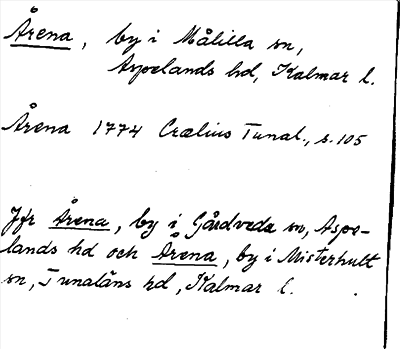 Årena, by i Målilla sn,
Aspelands hd, Kalmar l.
Årena 1774 Crælius Tunal., s. 105
Jfr Årena, by i Gårdveda sn, Aspe-
lands hd och Årena, by i Misterhult
sn, Tunaläns hd, Kalmar l.